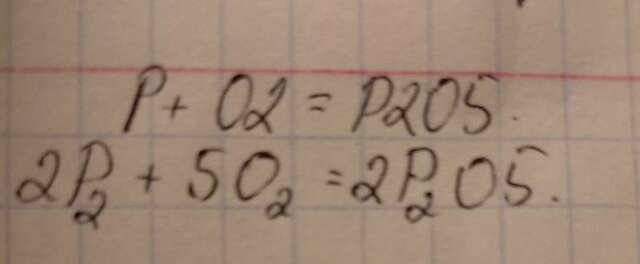 P + O2 = P2O5.
2P₂ + 5O₂ = 2P₂O5.